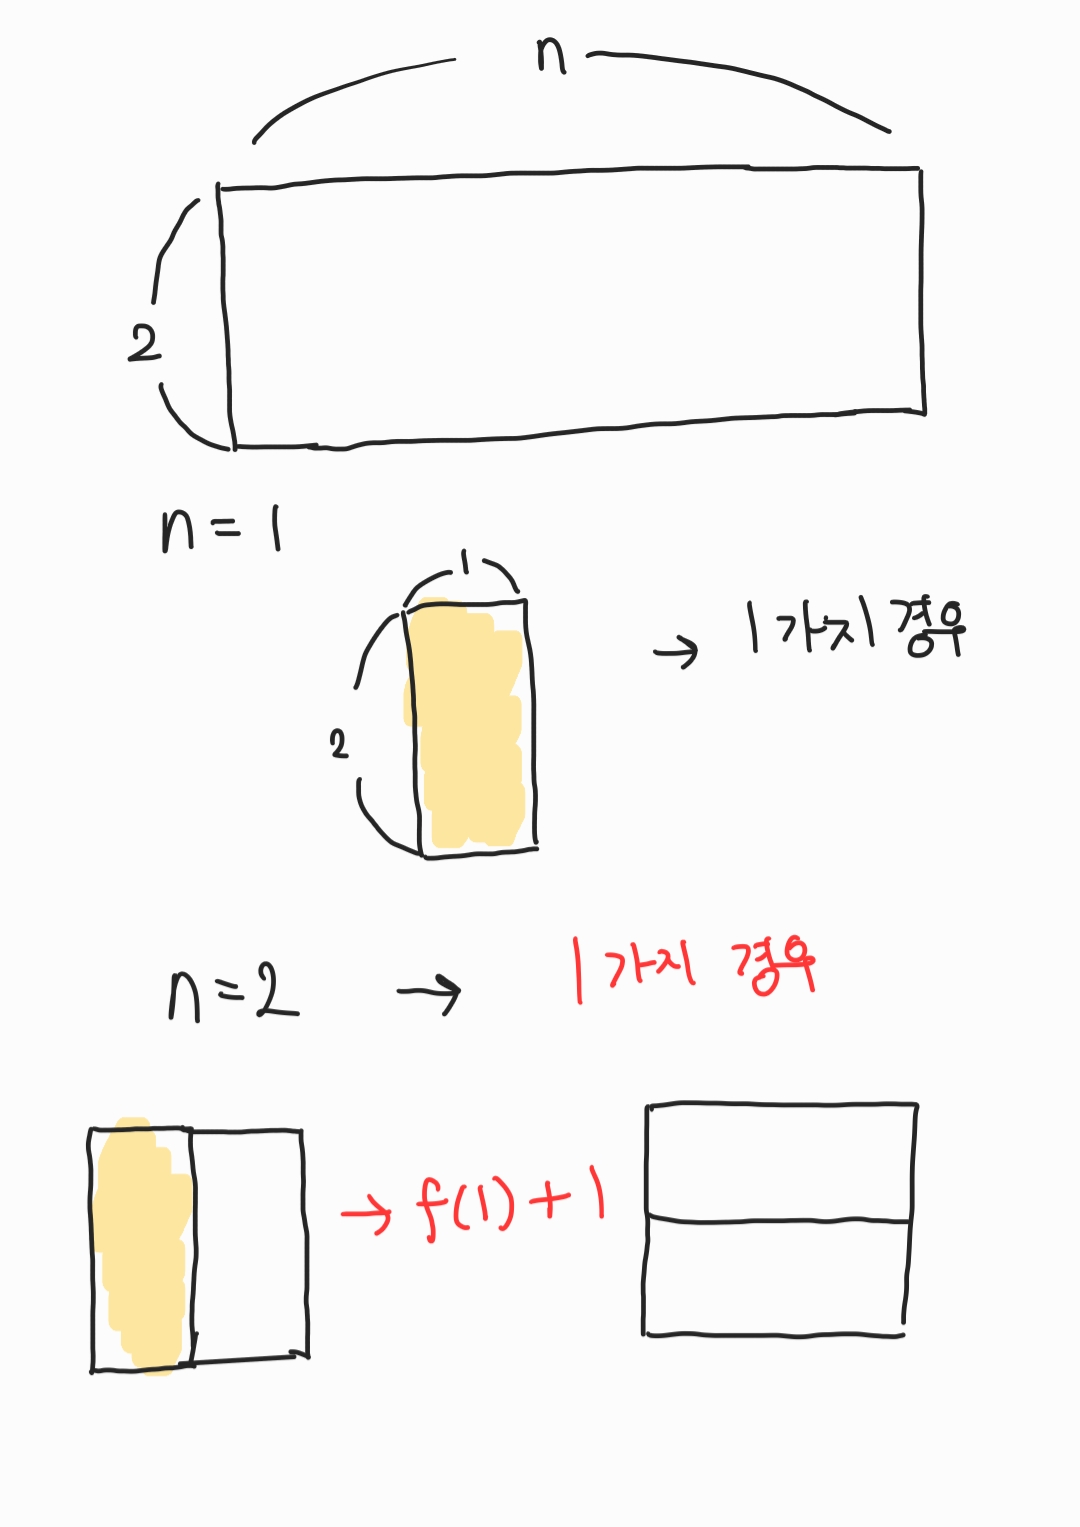 n
2
n = 1
1
2
→ 1가지 경우
n = 2 → 1가지 경우
→ f(1) + 1